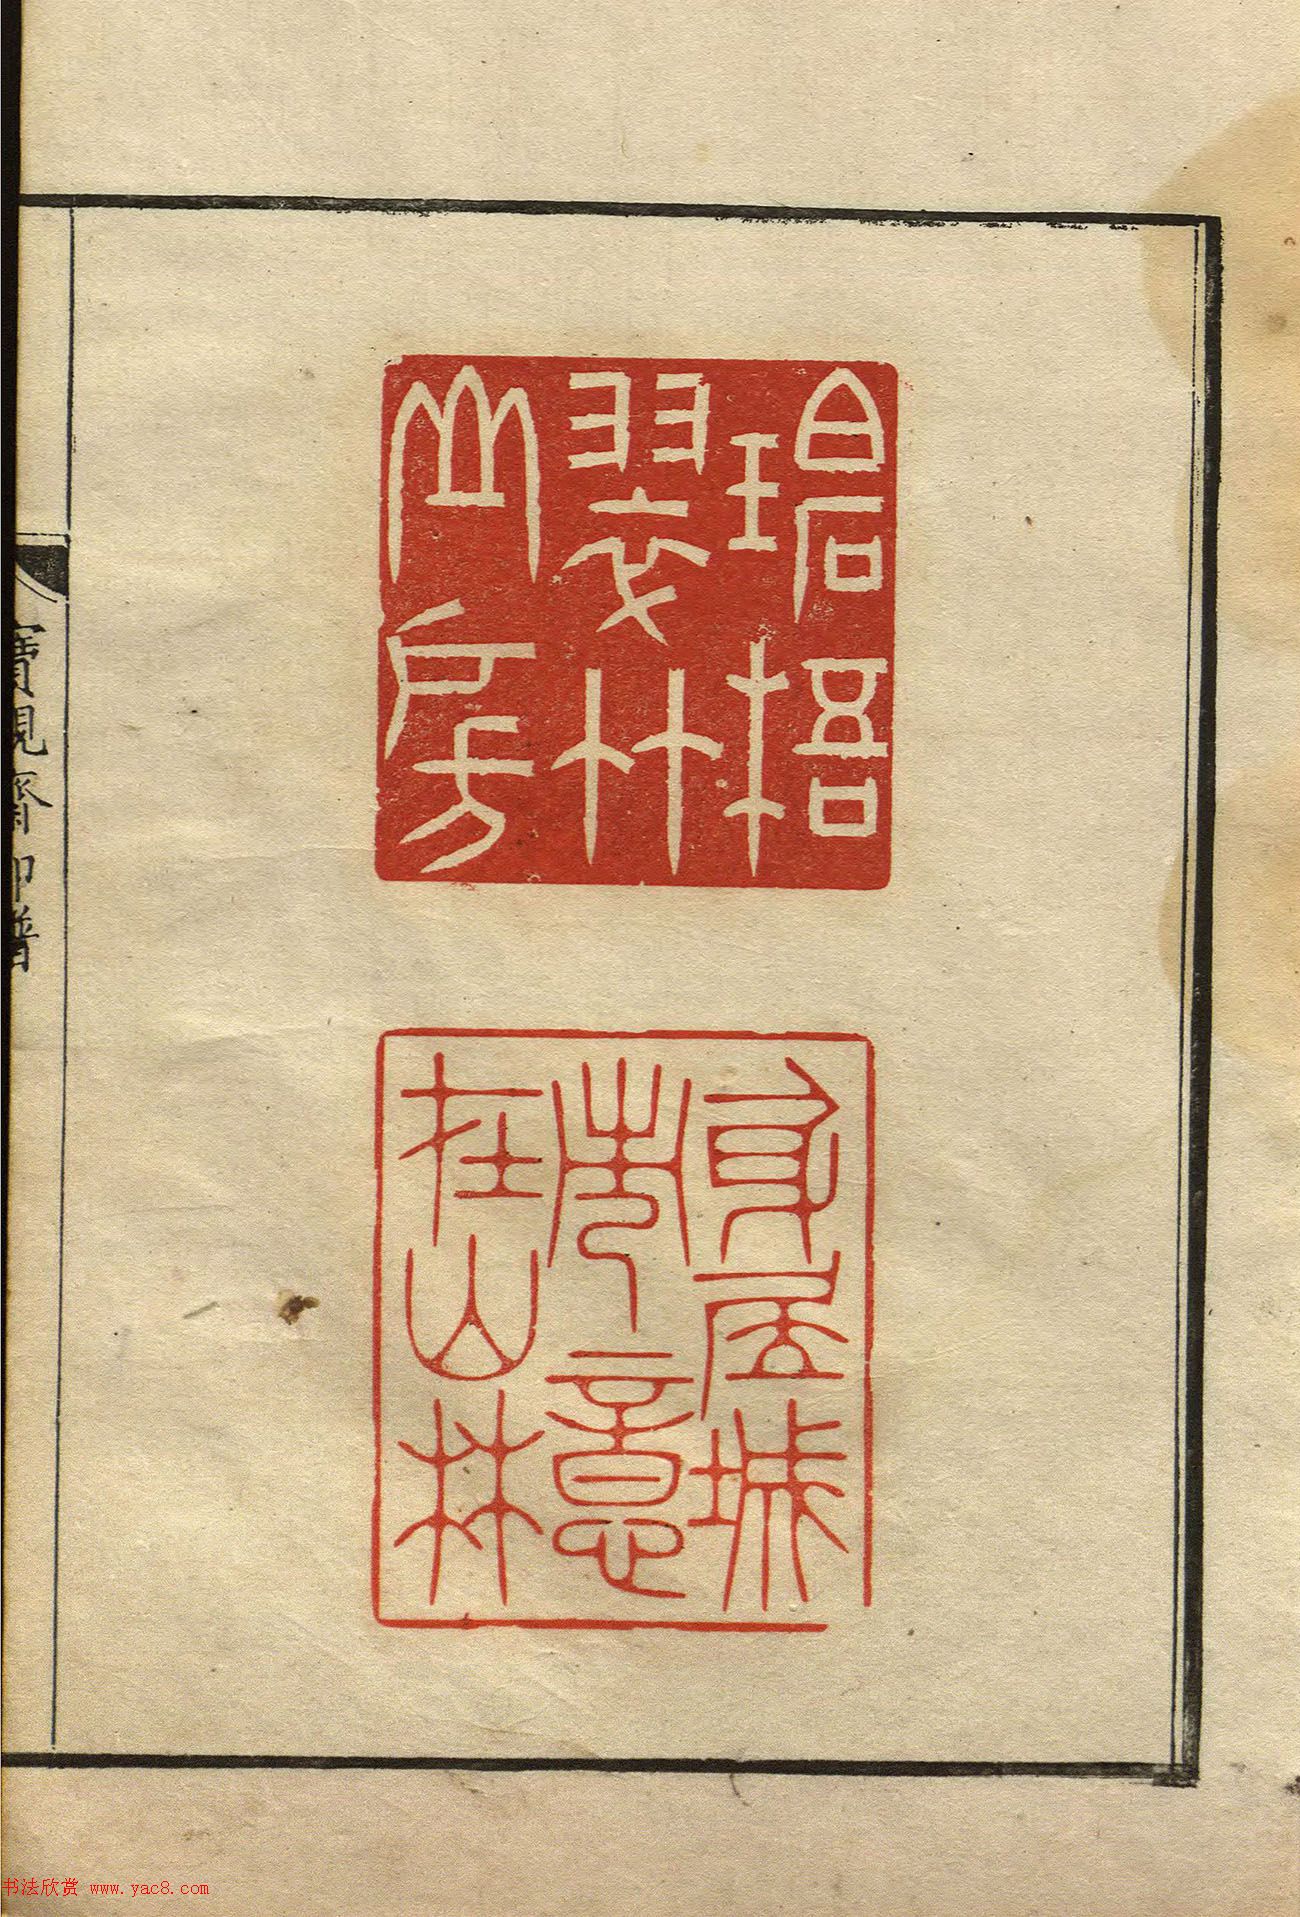 碧梧
翠竹
山房
身居城
市意
在山林
寶硯齋印譜
书法欣赏 www.yac8.com